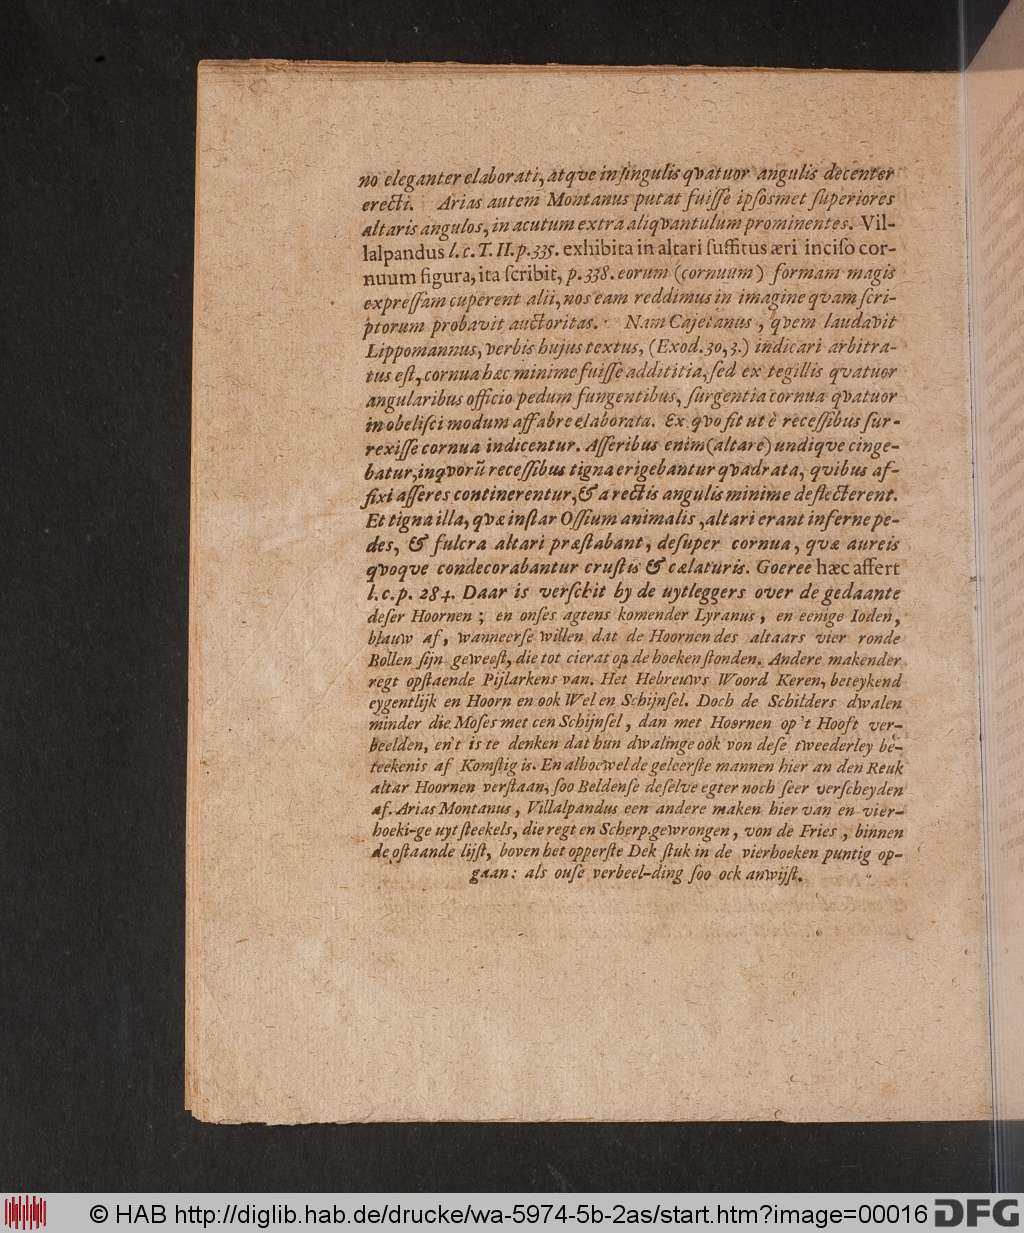 no eleganter elaborati, atqve in ſingulis qvatuor angulis decenter
erecti. Arias autem Montanus putat fuiſſe ipſosmet ſuperiores
altaris angulos, in acutum extra aliqvantulum prominentes. Vil-
lalpandus l. c. T. II. p. 335. exhibita in altari ſuffitus æri inciſo cor-
nuum figura, ita ſcribit, p. 338. eorum (cornuum) formam magis
expreſſam cuperent alii, nos eam reddimus in imagine qvam ſcri-
ptorum probavit auctoritas. Nam Cajetanus, qvem laudavit
Lippomannus, verbis hujus textus, (Exod. 30, 3.) indicari arbitra-
tus eſt, cornua hæc minime fuiſſe addititia, ſed ex tegillis qvatuor
angularibus officio pedum fungentibus, ſurgentia cornua qvatuor
in obeliſci modum affabre elaborata. Ex qvo fit ut è receſſibus ſur-
rexiſſe cornua indicentur. Aſſeribus enim (altare) undiqve cinge-
batur, in qvorũ receſſibus tigna erigebantur qvadrata, qvibus af-
fixi aſſeres continerentur, & a rectis angulis minime deflecterent.
Et tigna illa, qvæ inſtar Oſſium animalis, altari erant inferne pe-
des, & fulcra altari præſtabant, deſuper cornua, quæ aureis
qvoqve condecorabantur cruſtis & cælaturis. Goeree hæc affert
l. c. p. 284. Daar is verſchit by de uytleggers over de gedaante
deſer Hoornen; en onſes agtens komender Lyranus, en eenige Ioden,
blauw af, wanneerſe willen dat de Hoornen des altaars vier ronde
Bollen ſijn geweeſt, die tot cierat op de hoeken ſtonden. Andere makender
regt opſtaende Pijlarkens van. Het Hebreuws Woord Keren, beteykend
eygentlijk en Hoorn en ook Wel en Schijnſel. Doch de Schilders dwalen
minder die Moſes met cen Schijnſel, dan met Hoornen op 't Hooft ver-
beelden, en't is te denken dat hun dwalinge ook von deſe tweederley be-
teekenis af Komſtig is. En alhoewel de geleerſte mannen hier an den Reuk
altar Hoornen verſtaan, ſoo Beldenſe deſelve egter noch ſeer verſcheyden
af. Arias Montanus, Villalpandus een andere maken hier van en vier-
hoeki-ge uytſteekels, die regt en Scherp gewrongen, von de Fries, binnen
de oſtaande lijſt, boven het opperſte Dek ſtuk in de vierhoeken puntig op-
gaan: als ouſe verbeel-ding ſoo ock anwijſt.
© HAB http://diglib.hab.de/drucke/wa-5974-5b-2as/start.htm?image=00016 DFG